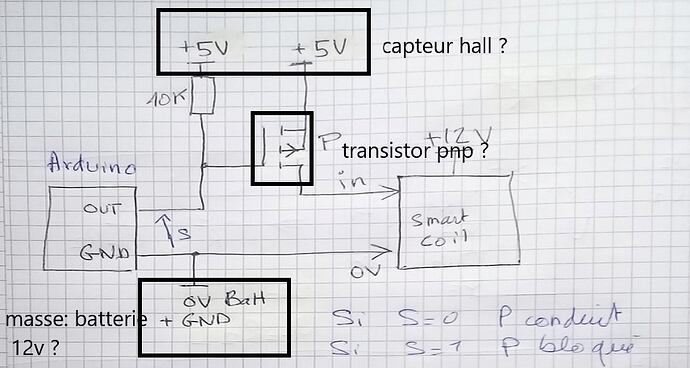 +5V +5V capteur hall ?
10K
P transistor pnp ?
+12V
Arduino
in
OUT
S
smart
coil
GND
0V
0V Batt
masse: batterie + GND
12v ?
Si S=0 P conduit
Si S=1 P bloqué